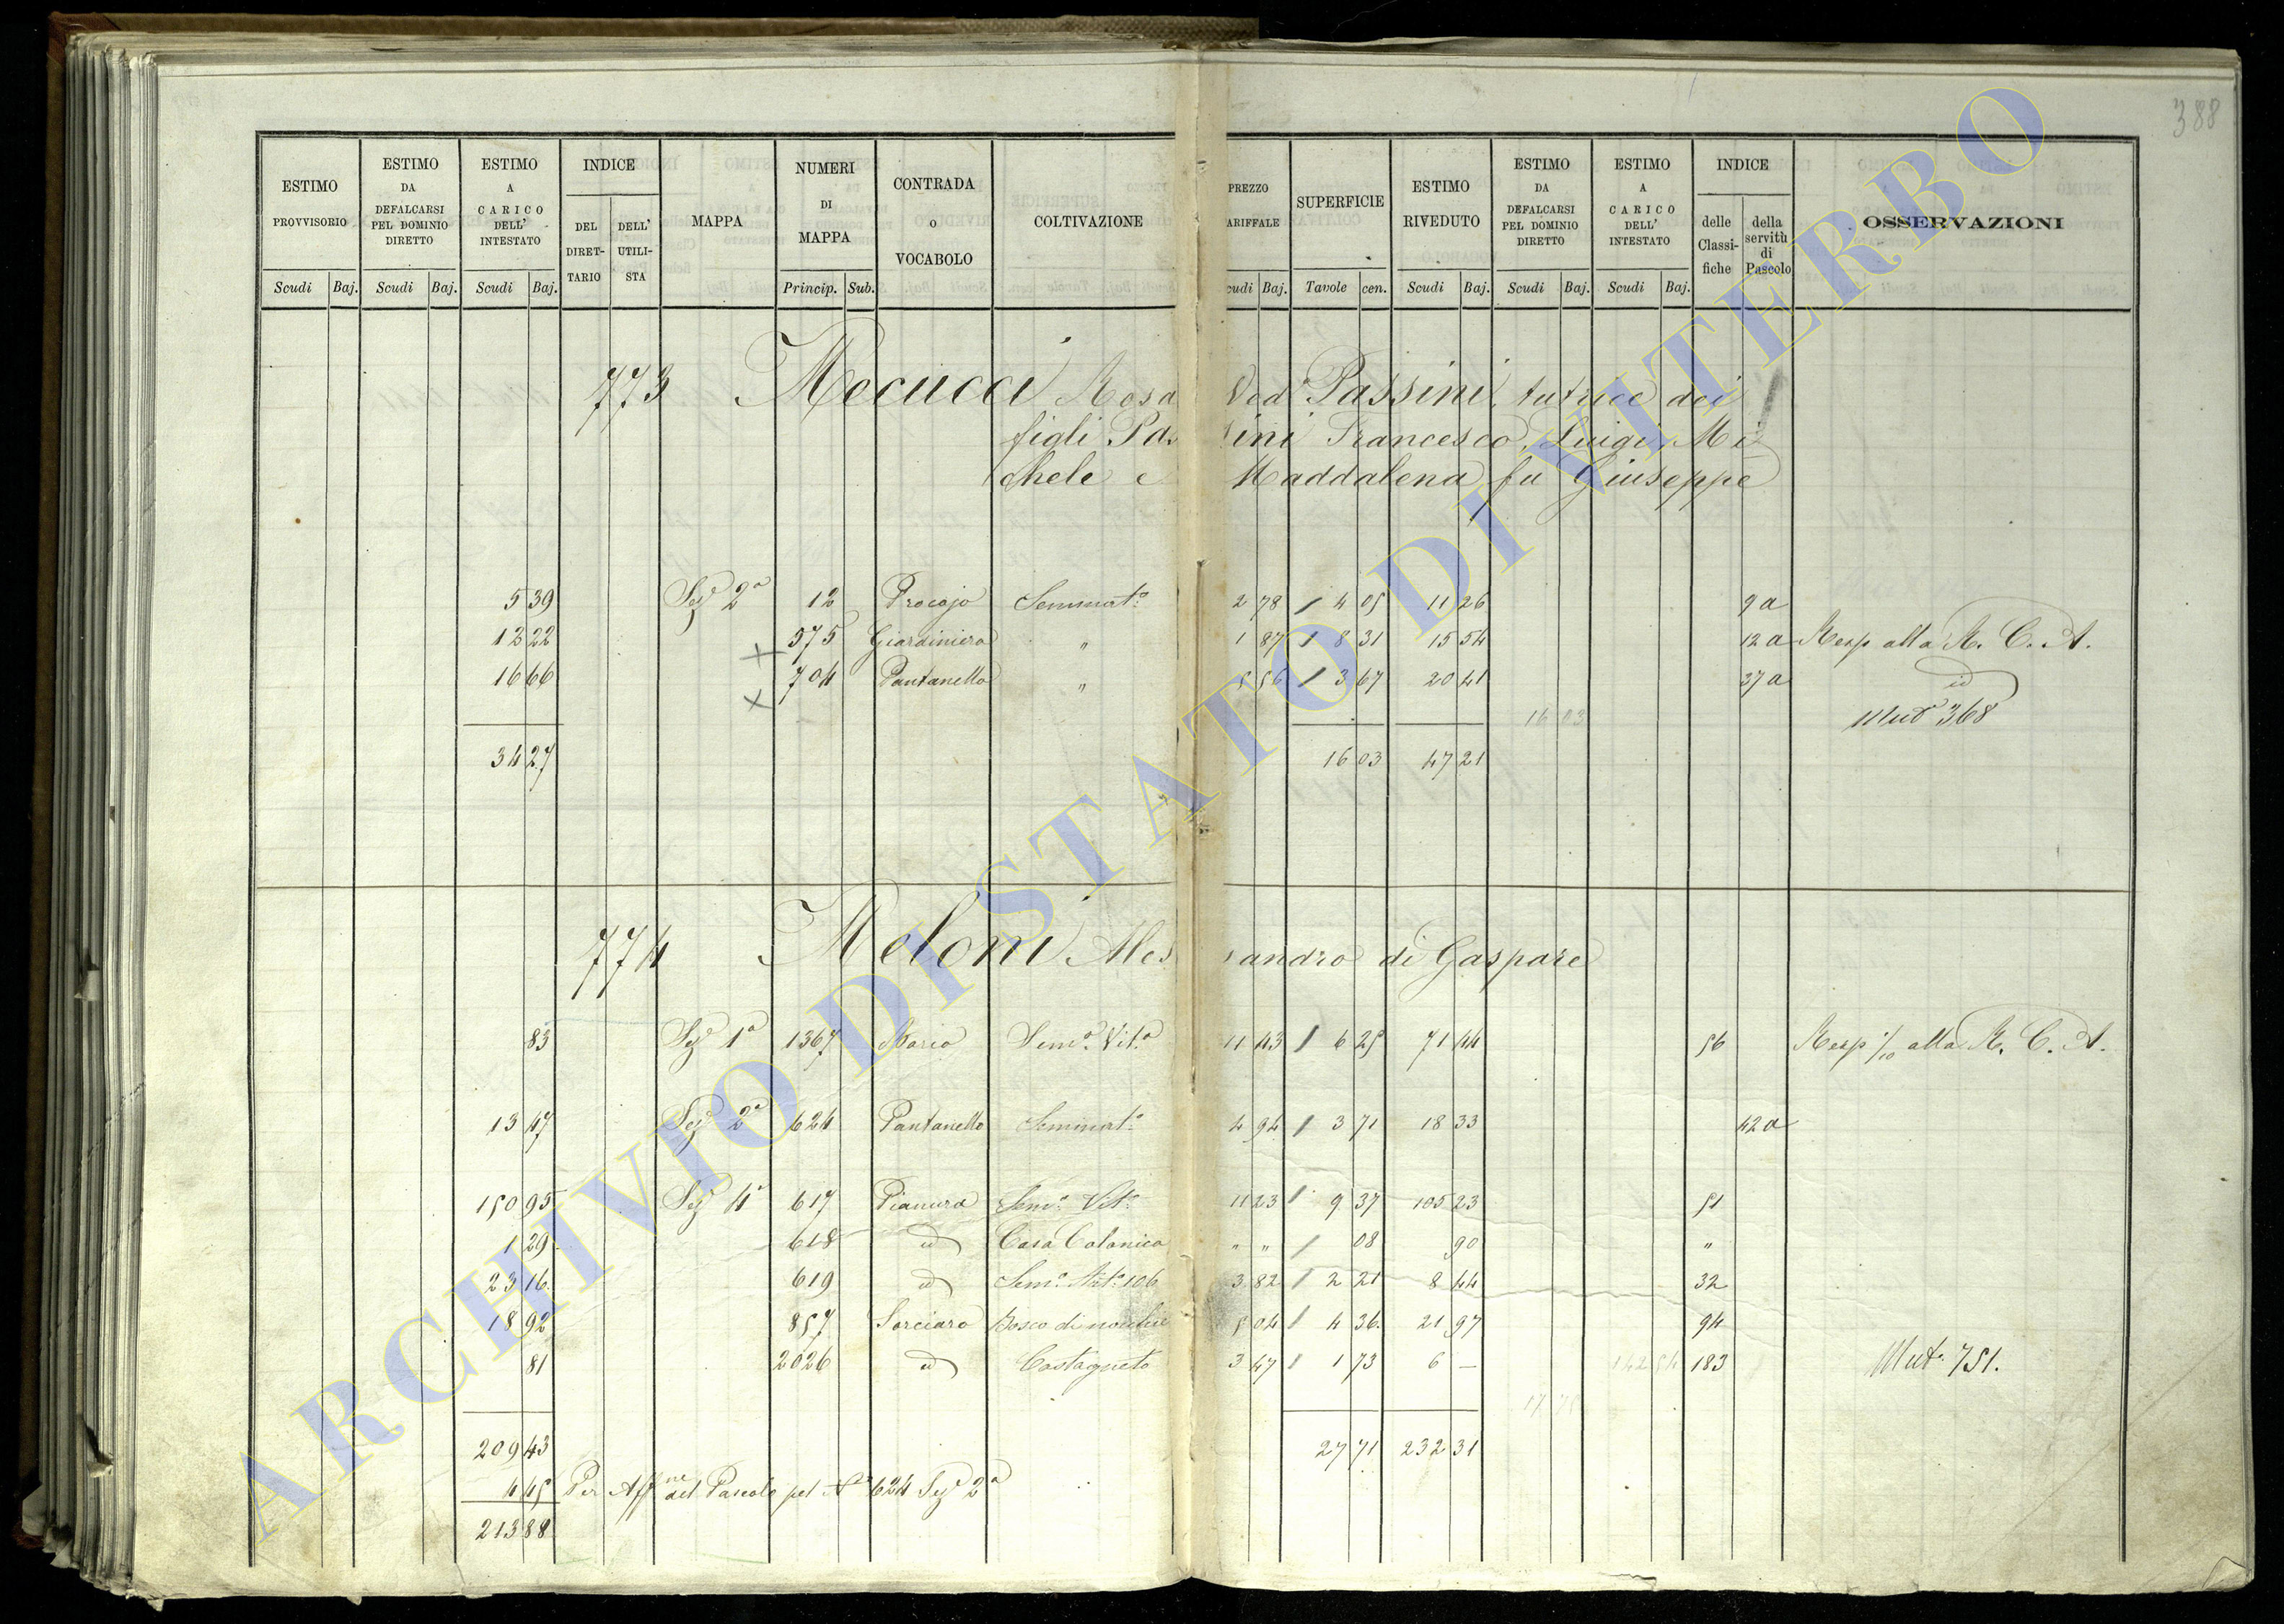 388
ESTIMO PROVVISORIO
ESTIMO DA DEFALCARSI PEL DOMINIO DIRETTO
ESTIMO A CARICO DELL' INTESTATO
INDICE
DEL DIRETTARIO
DELL' UTILISTA
MAPPA
NUMERI DI MAPPA
CONTRADA o VOCABOLO
COLTIVAZIONE
PREZZO
ARIFFALE
SUPERFICIE
ESTIMO RIVEDUTO
ESTIMO DA DEFALCARSI PEL DOMINIO DIRETTO
ESTIMO A CARICO DELL' INTESTATO
INDICE
delle Classifiche
della servitù di Pascolo
OSSERVAZIONI
Scudi Baj. Scudi Baj. Scudi Baj. Princip. Sub. cudi Baj. Tavole cen. Scudi Baj. Scudi Baj. Scudi Baj.
773 Mecucci Rosa Ved Passini, tutrice dei
figli Pas ini Francesco, Luigi, Mi
chele e Maddalena fu Giuseppe
5 39 Sez 2a 12 Procojo Seminat.o 2 78 4 05 11 26 9 a
12 22 575 Giardiniera " 1 87 8 31 15 54 12 a Resp alla R. C. A.
16 66 704 Pantanella " 5 56 3 67 20 41 37 a id
16 03 Mut 368
34 27 16 03 47 21
774 Meloni Ales andro di Gaspare
83 Sez 1a 1367 Sem.o Vit.o 11 43 6 25 71 44 56 Resp 1/10 alla R. C. A.
13 47 Sez 2a 624 Pantanella Seminat.o 4 94 3 71 18 33 42 a
150 95 Sez 4a 617 Pianura Sem.o Vit.o 11 23 9 37 105 23 51
1 29 618 id Casa Colonica " " 08 90 "
23 16 619 id 3 82 2 21 8 44 32
18 92 857 Sorciaro 5 04 4 36 21 97 94
81 2026 id Castagneto 3 47 1 73 6 — 142 54 183 Mut. 751.
209 43 27 71 232 31
4 45 Per Aff.ne del Pascolo pel N.o 624 Sez 2a
213 88
ARCHIVIO DI STATO DI VITERBO